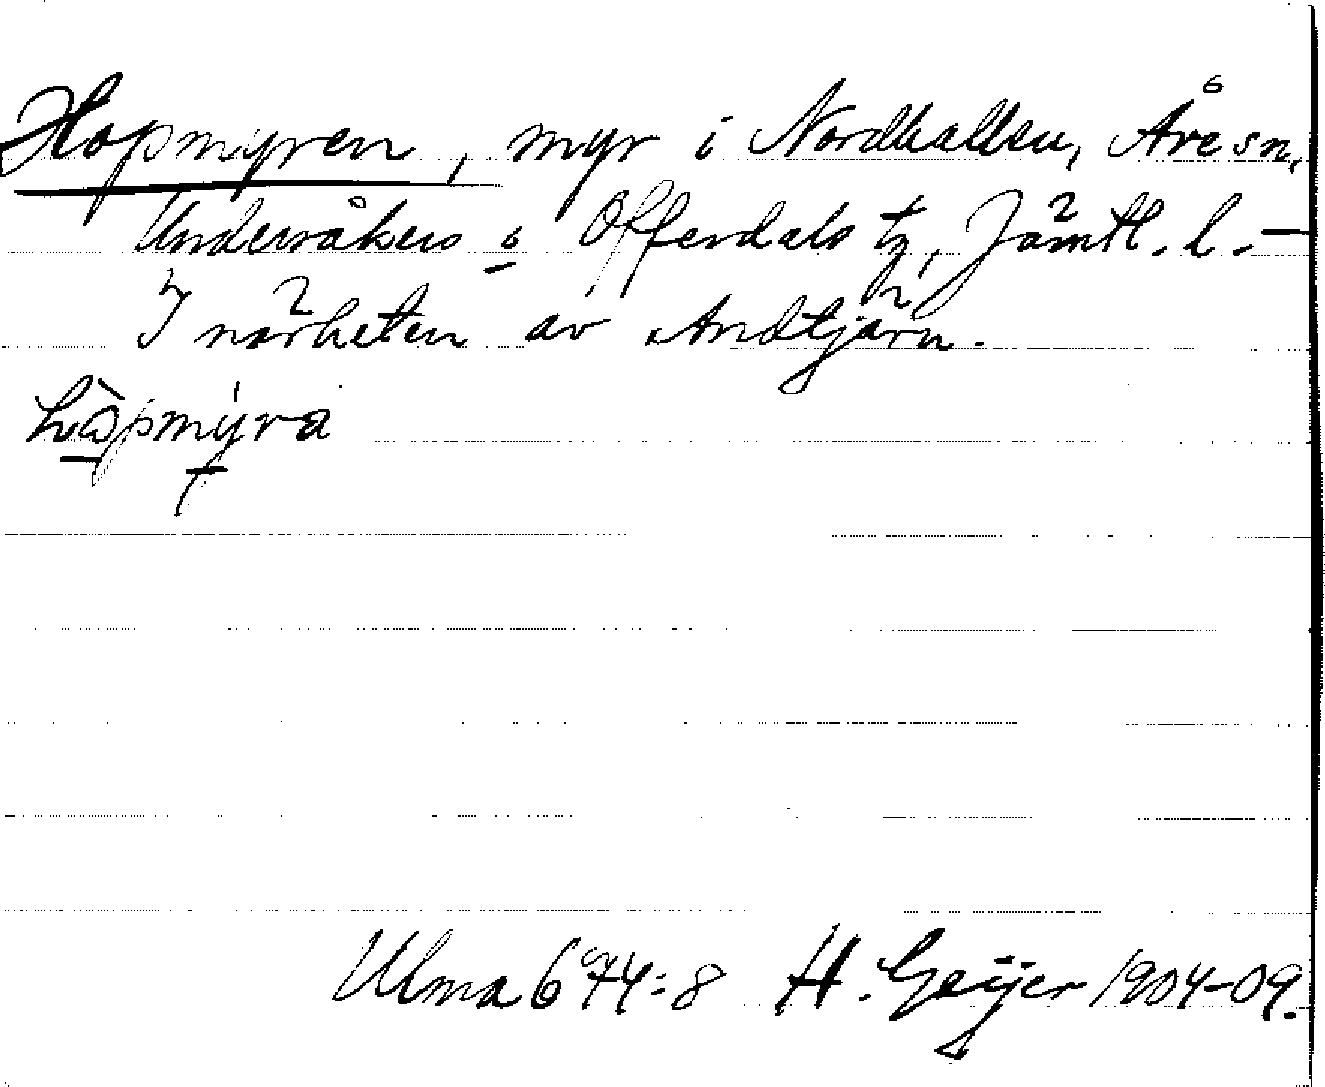 Hopmyren, myr i Nordhallen, Åre sn,
Undersåkers o Offerdals tg, Jämtl. l. –
I närheten av Andtjärn.
hòpmýra
Ulma 644:8 H. Geijer 1904-09.